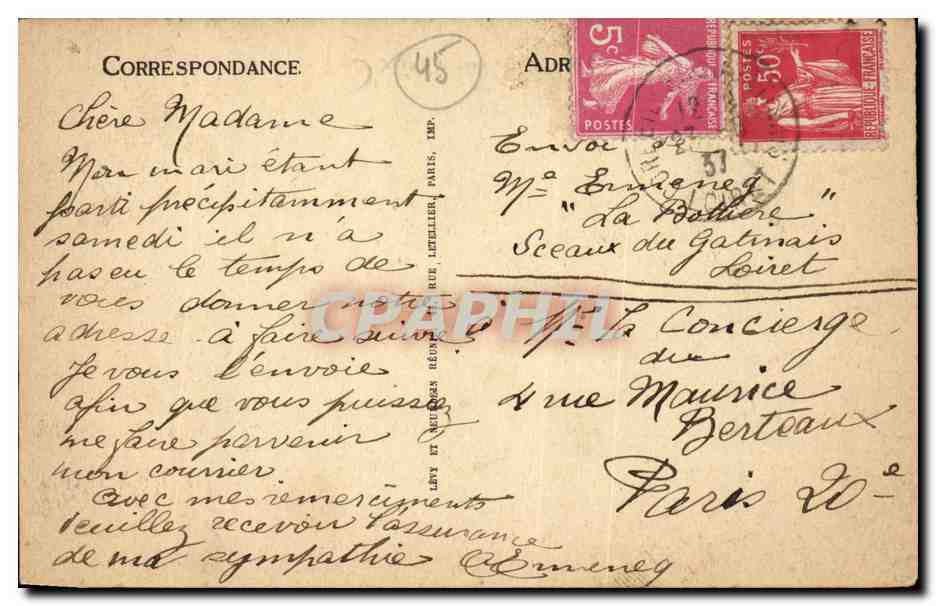 CORRESPONDANCE.
45
Chère Madame
Mon mari étant
parti précipitamment
samedi il n'a
pas eu le temps de
vous donner notre
adresse à faire suivre
Je vous l'envoie
afin que vous puissiez
me faire parvenir
mon courrier
avec mes remerciments
veuillez recevoir l'assurance
de ma sympathie Ermeneg
LÉVY ET NEURDEIN RÉUNIS RUE LETELLIER, PARIS, IMP.
ADR
5c
REPUBLIQUE FRANÇAISE
POSTES
POSTES
50c
REPUBLIQUE FRANÇAISE
12
37
LOIRET
Envoi
Me Ermeneg
"La Bottiere"
Sceaux du Gatinais
Loiret
Me La Concierge
du
4 rue Maurice
Berteaux
Paris 20e
CPAPHIL